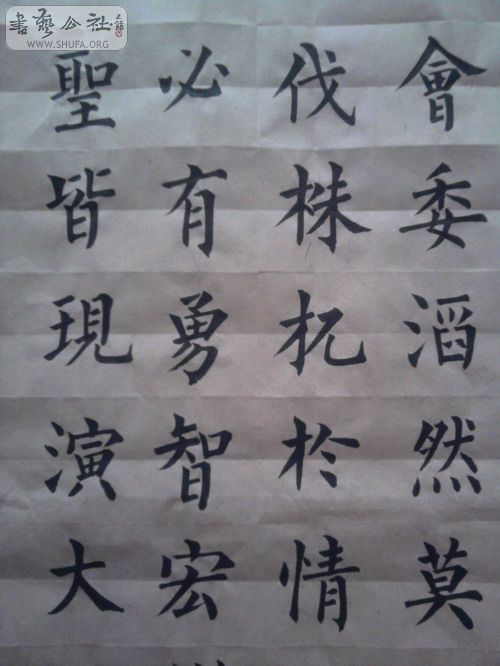 書藝公社
WWW.SHUFA.ORG
會委滔然莫
伐株杌於情
必有勇智宏
聖皆現演大